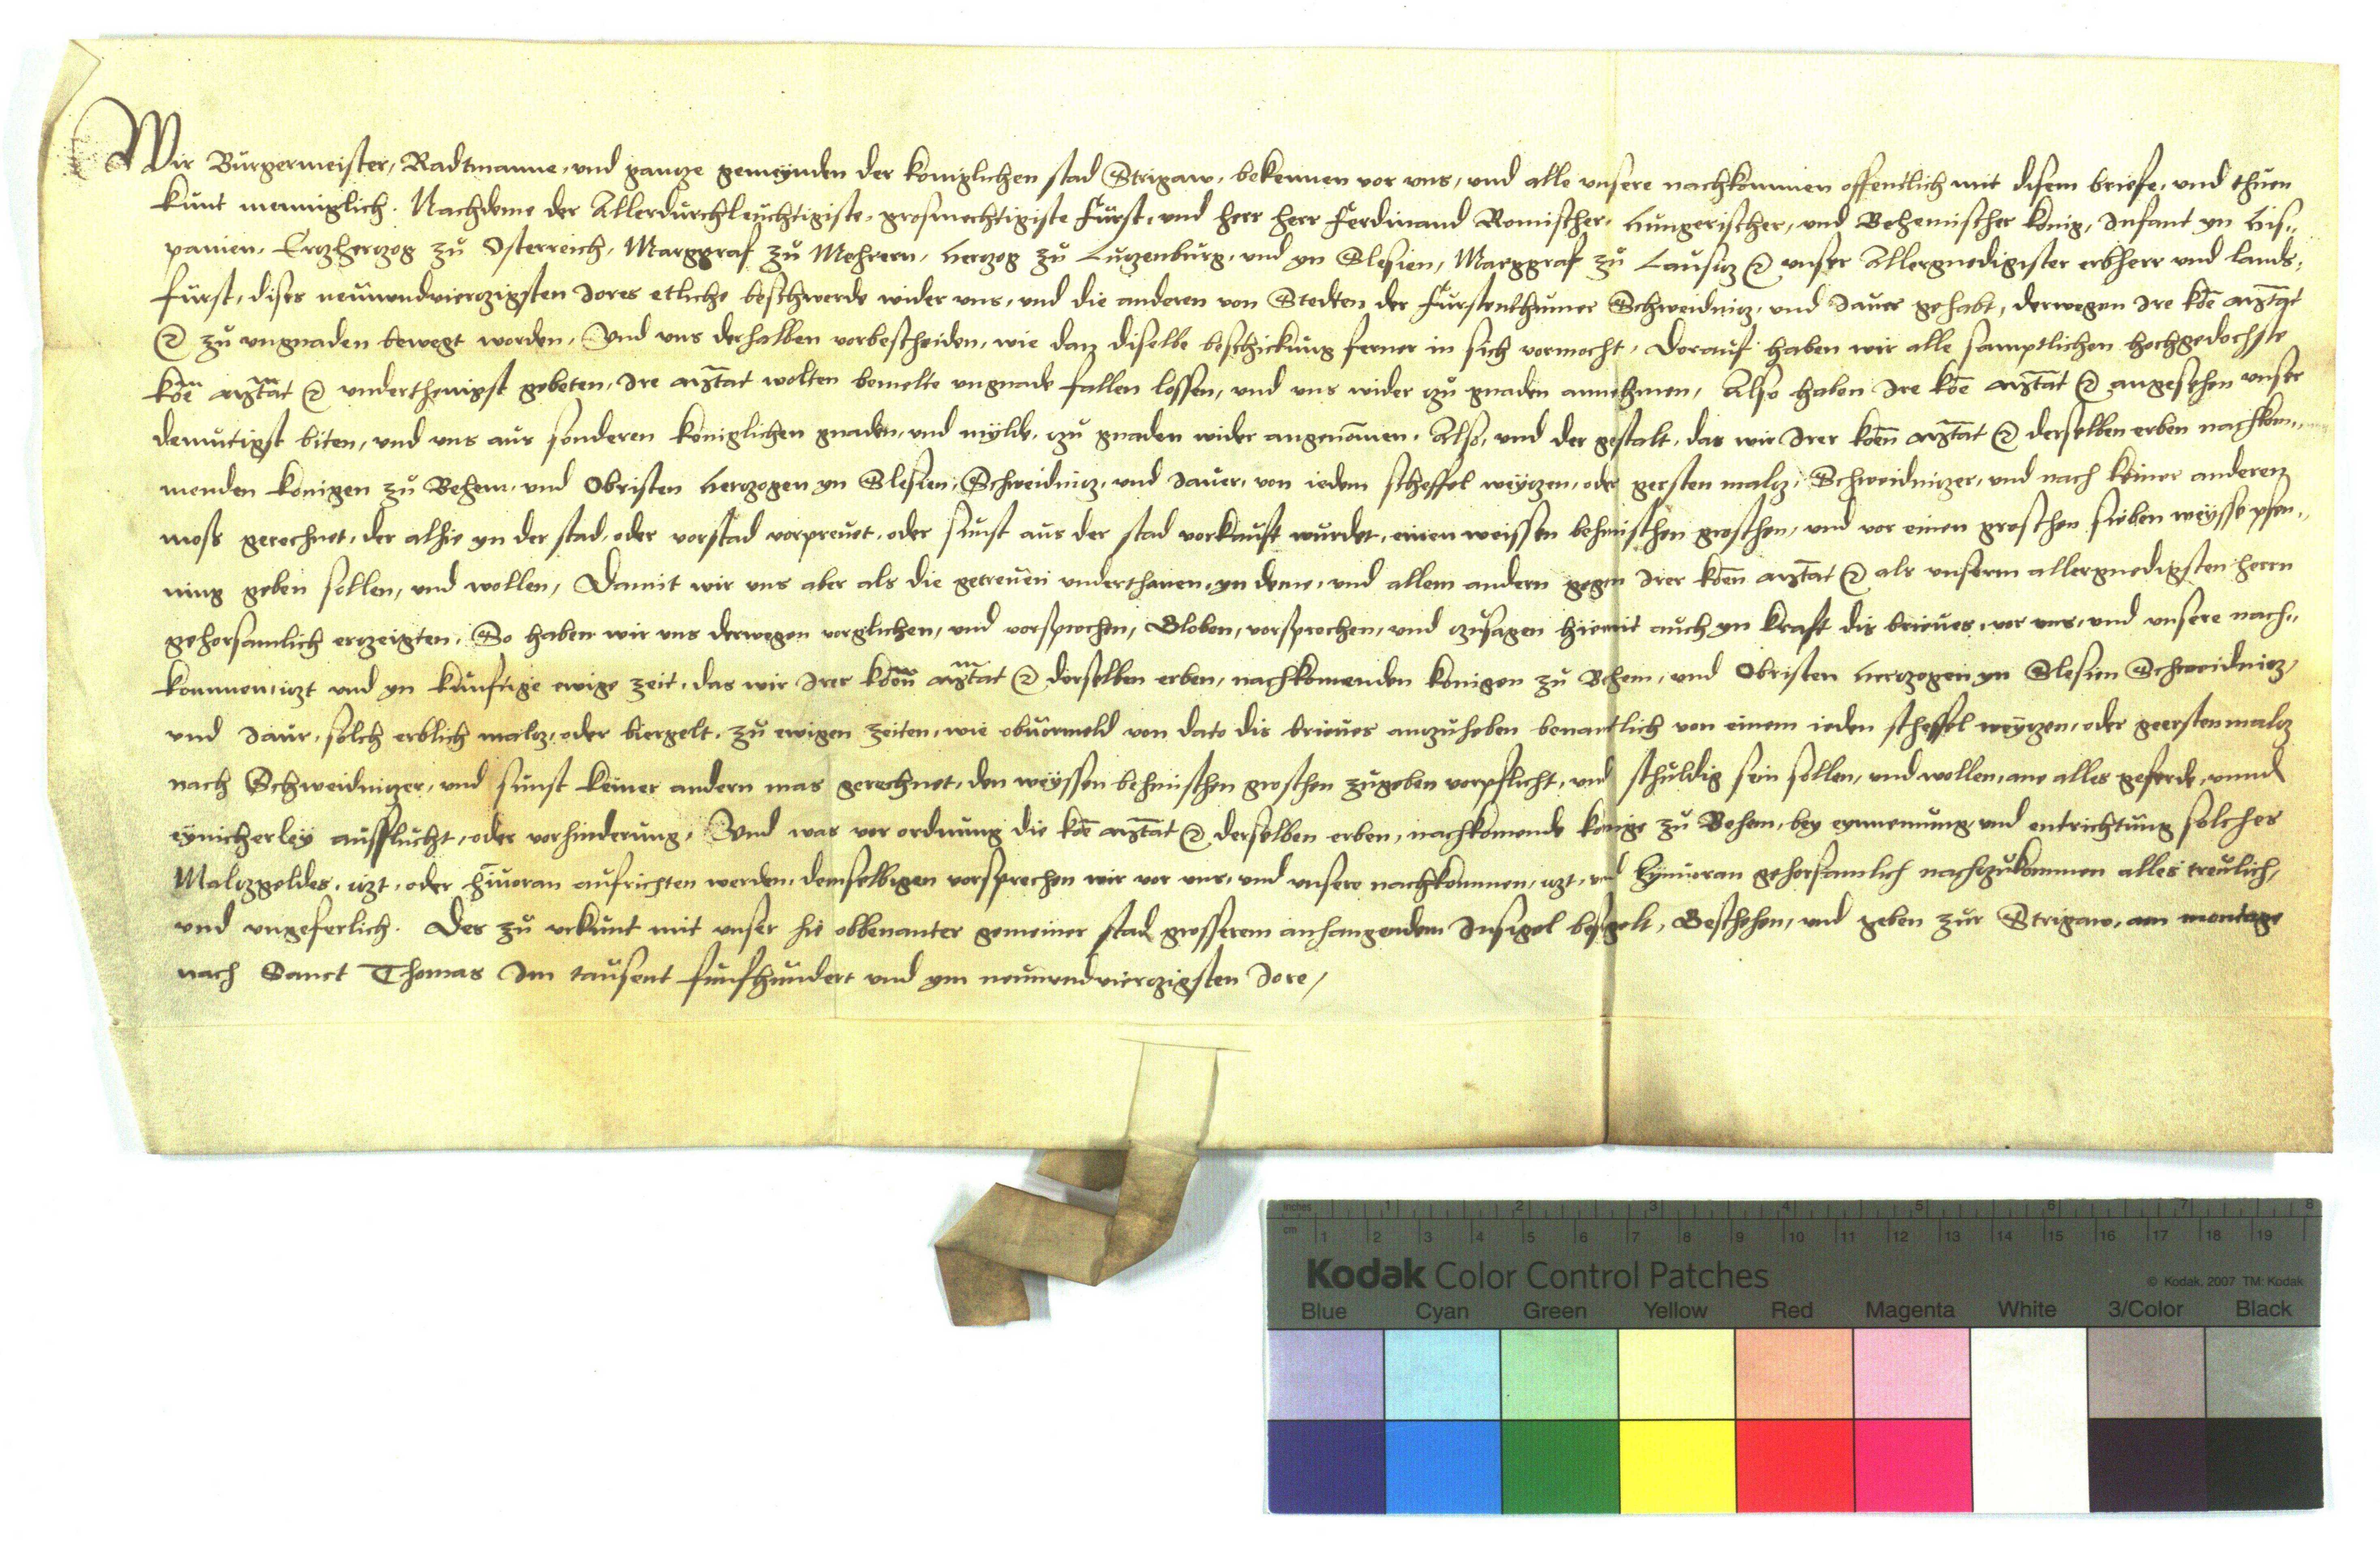 Wir Burgermeister, Radtmanne, und gantze gemeynden der koniglichen stad Strigaw, bekennen vor uns, und alle unsere nachkommen offentlich mit disem briefe, und thuen
kunt menniglich. Nachdeme der Allerdurchleuchtigiste, grosmechtigiste Fürst, und herr herr Ferdinand Romischer, Hungerischer, und Behemischer konig, Infant yn His-
panien, Ertzhertzog zu Osterreich, Marggraf zu Mehrern, Hertzog zu Lutzenburg, und yn Slesien, Marggraf zu Lausitz &c unser Allergnedigister erbherr und lands-
furst, dises neunundviertzigsten Jores etliche beschwerde wider uns, und die anderen von Stedten der Furstenthumer Schweidnitz, und Jauer gehabt, derwegen Ire koe mtat
&c zu ungnaden bewegt worden, Und uns derhalben vorbescheiden, wie dan diselbe beschickung ferner in sich vormocht, Dorauf haben wir alle samptlichen hochgedochste
koe mtat &c underthenigst gebeten, Ire mtat wolten bemelte ungnade fallen lossen, und uns wider zu gnaden annehmen, Also haben Ire koe mtat &c angesehen unser
demutigst biten, und uns aus sonderen koniglichen gnaden, und mylde, zu gnaden wider angenomen. Also, und der gestalt, das wir Irer koen mtat &c derselben erben nachkom-
menden konigen zu Behem, und Obristen Hertzogen yn Slesien, Schweidnitz, und Jauer, von iedem scheffel weytzen, oder gersten maltz, Schweidnitzer, und nach keiner anderen
moss gerechnet, der alhie yn der stad, oder vorstad vorpreuet, oder sunst aus der stad vorkauft wurdet, einen weissen behmischen groschen, und vor einen groschen sieben weysse pfen-
ning geben sollen, und wollen, Damit wir uns aber als die getreuen underthanen, yn deme, und allem andern gegen Irer koen mtat &c als unserm allergnedigsten herrn
gehorsamlich ertzeigten, So haben wir uns derwegen vorglichen, und vorsprochen, Globen, vorsprechen, und zusagen hiemit auch yn kraft dis brieues, vor uns, und unsere nach-
kommen, itzt und yn kunftige ewige zeit, das wir Irer koen mtat &c derselben erben, nachkomenden konigen zu Behem, und Obristen Hertzogen yn Slesien Schweidnitz,
und Jaur, solch erblich maltz, oder biergelt, zu ewigen zeiten, wie obuormeld von dato dis brieues antzuheben benantlich von einem ieden scheffel weytzen, oder geerstenmaltz
nach Schweidnitzer, und sunst keiner andern mas gerechnet, den weyssen behmischen groschen zugeben vorpflicht, und schuldig sein sollen, und wollen, ane alles geferde, unnd
eynicherley ausflucht, oder vorhinderung, Und was vor ordnung die koe mtat &c derselben erben, nachkomende konige zu Behem, bey eynnemung, und entrichtung solches
Maltzgeldes, itzt, oder hiuoran aufrichten werden, demselbigen vorsprechen wir vor uns, und unsere nachkommen, itzt, und hynuoran gehorsamlich nachtzukommen alles treulich,
und ungeferlich. Des zu urkunt mit unser hie obbenanter gemeiner stad grosserem anhangendem Insigel besigelt, Geschehen, und geben zur Strigaw, am montage
nach Sanct Thomas Im tausent funfhundert und ym neunundviertzigsten Jore,
inches 1 2 3 4 5 6 7 8
cm 1 2 3 4 5 6 7 8 9 10 11 12 13 14 15 16 17 18 19
Kodak Color Control Patches
© Kodak, 2007 TM: Kodak
Blue Cyan Green Yellow Red Magenta White 3/Color Black